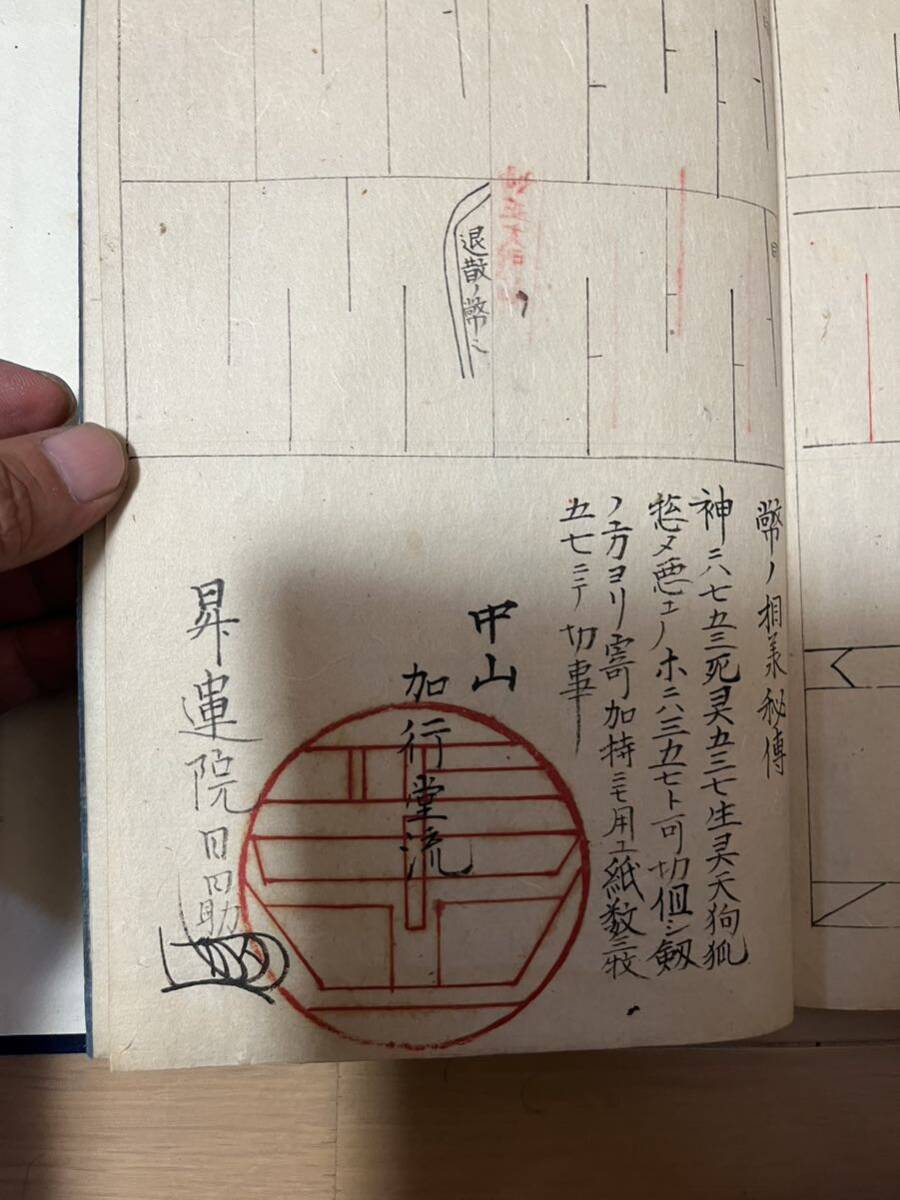 退散ノ幣ハ
幣ノ相義秘傳
神ニ八七五三死灵五三七生灵天狗狐
惣メ悪ェノホニ八三五七ト可切但シ劔
ノ方ヨリ寄加持ニモ用ユ紙数三枚
五七ニテ切事
中山
加行堂流
昇運院日